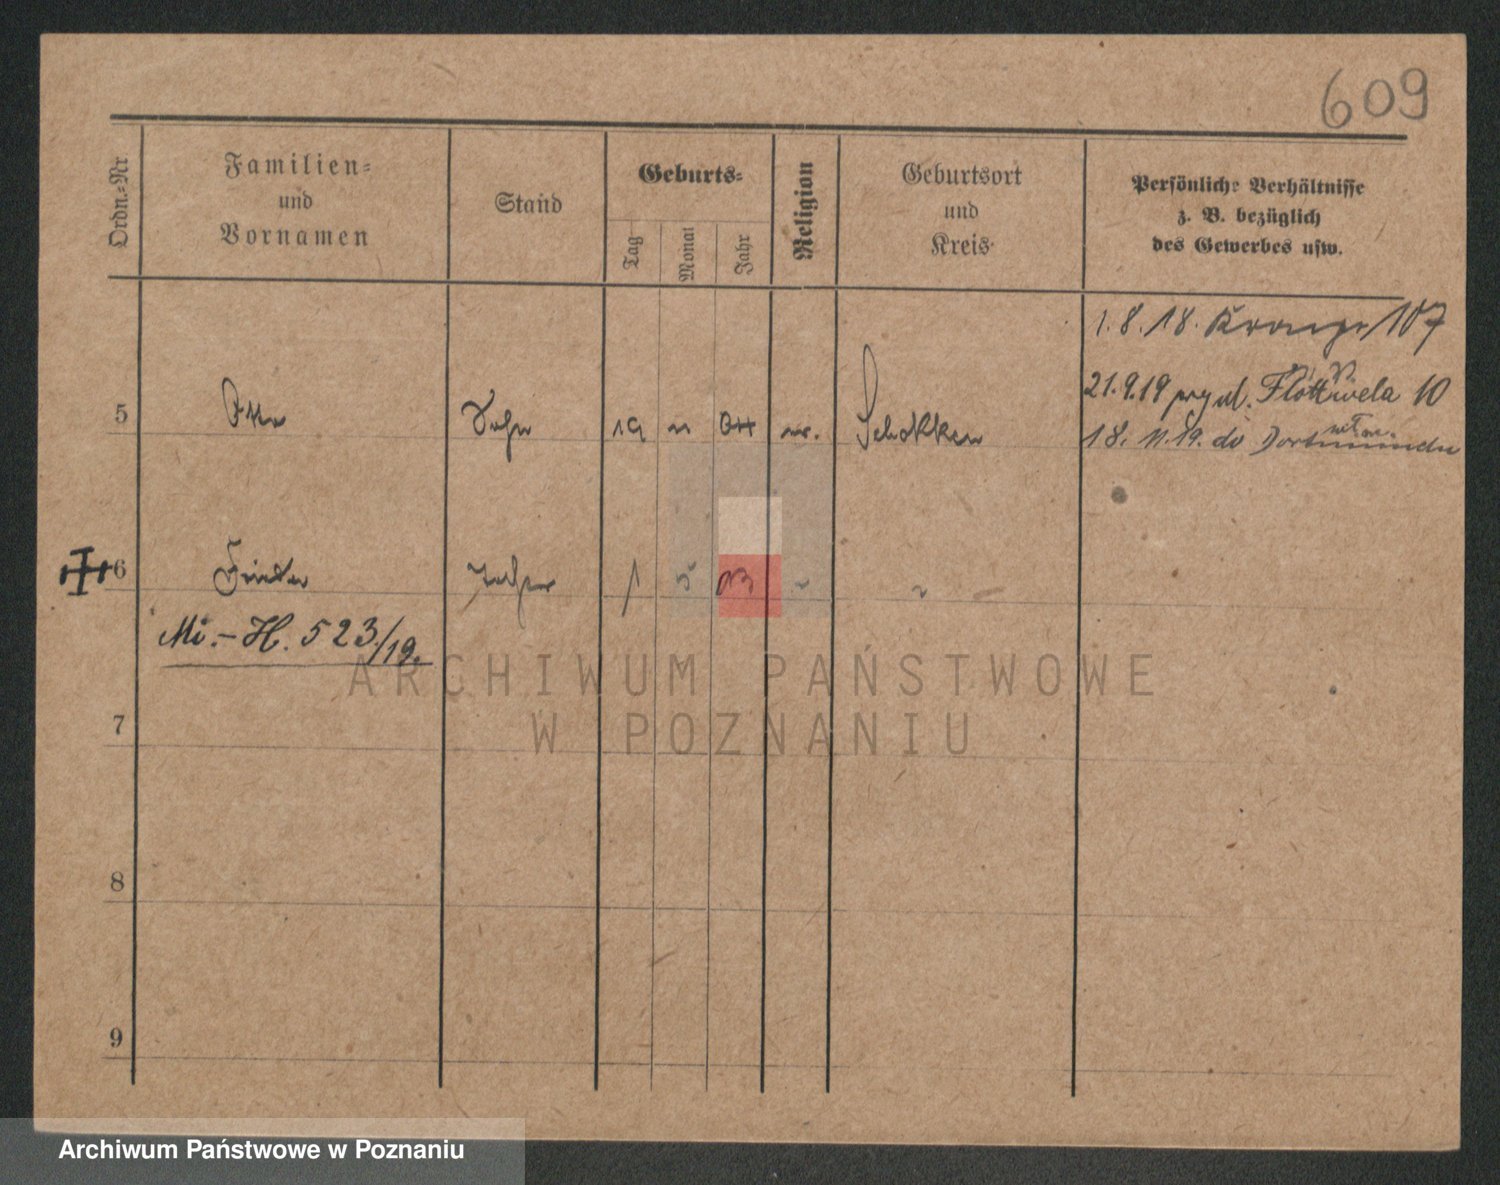 609
Ordn.=Nr
Familien=
und
Vornamen
Stand
Geburts=
Tag
Monat
Jahr
Religion
Geburtsort
und
Kreis
Persönliche Verhältnisse
z. B. bezüglich
des Gewerbes usw.
1.8.18. 107
21.9.19 10
5 Otto Sohn 19 Schokken
18. 11. 19. do
6 Tochter 1 5 03 "
Mi.-H. 523/19.
7
8
9
ARCHIWUM PAŃSTWOWE
W POZNANIU
Archiwum Państwowe w Poznaniu